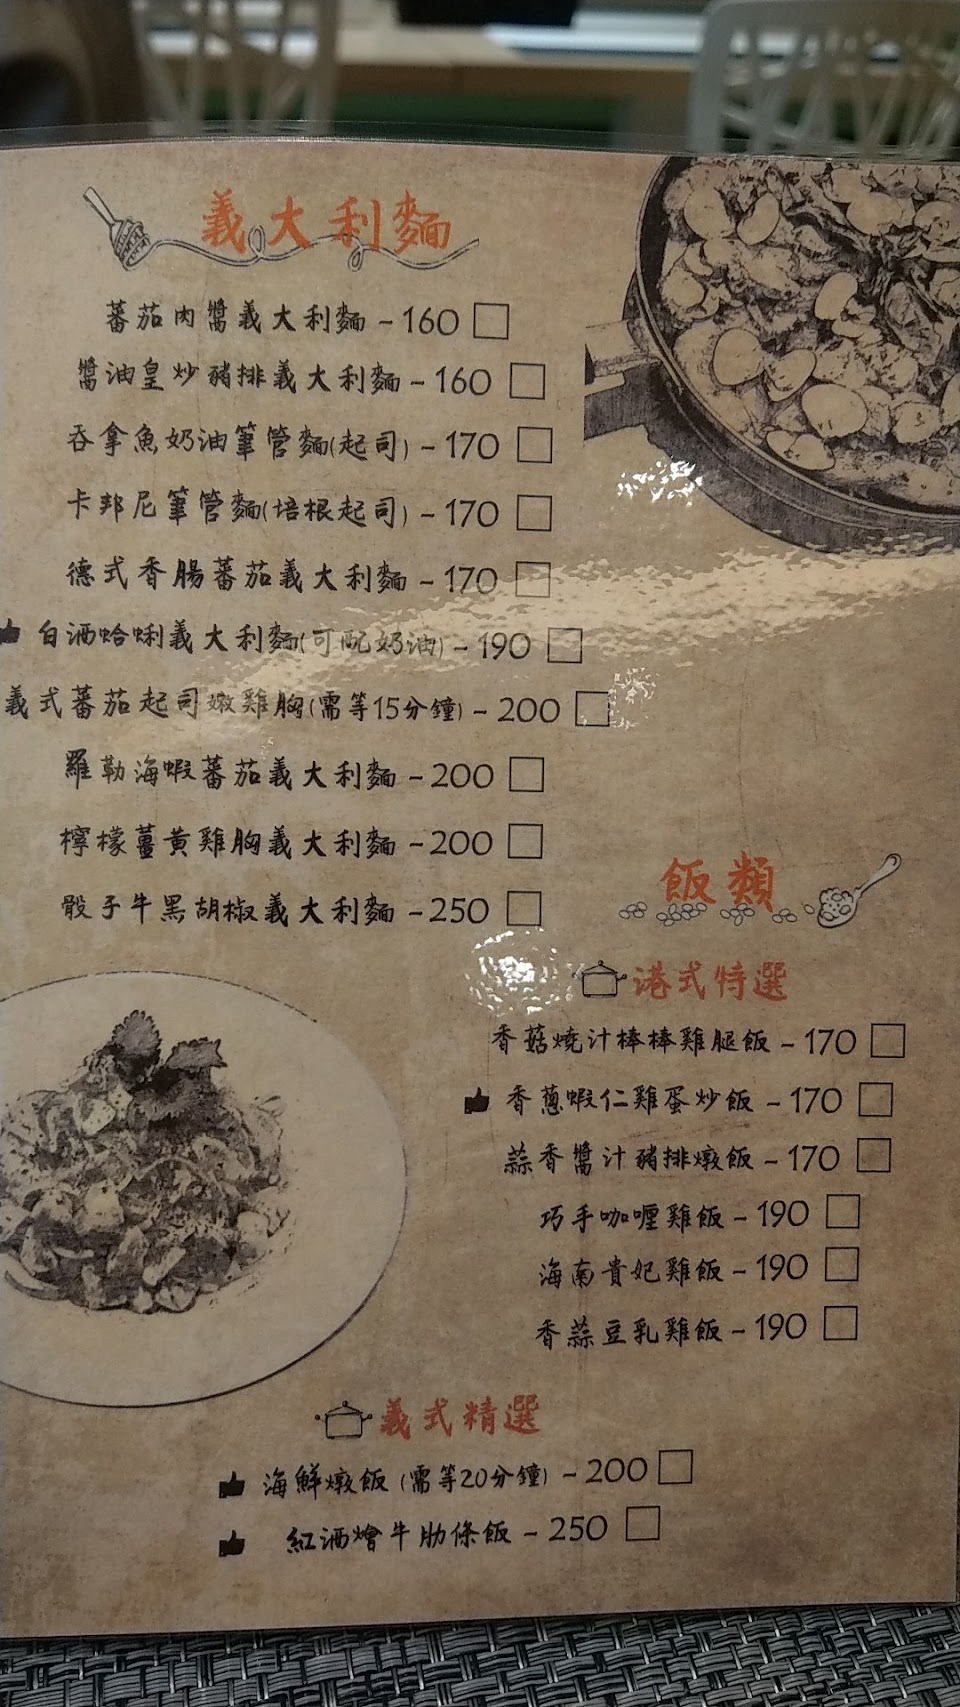 義大利麵
蕃茄肉醬義大利麵 - 160 □
醬油皇炒豬排義大利麵 - 160 □
吞拿魚奶油筆管麵(起司) - 170 □
卡邦尼筆管麵(培根起司) - 170 □
德式香腸蕃茄義大利麵 - 170 □
白酒蛤蜊義大利麵(可配奶油) - 190 □
義式蕃茄起司嫩雞胸(需等15分鐘) - 200 □
羅勒海蝦蕃茄義大利麵 - 200 □
檸檬薑黃雞胸義大利麵 - 200 □
骰子牛黑胡椒義大利麵 - 250 □
飯類
港式特選
香菇燒汁棒棒雞腿飯 - 170 □
香蔥蝦仁雞蛋炒飯 - 170 □
蒜香醬汁豬排燉飯 - 170 □
巧手咖喱雞飯 - 190 □
海南貴妃雞飯 - 190 □
香蒜豆乳雞飯 - 190 □
義式精選
海鮮燉飯 (需等20分鐘) - 200 □
紅酒燴牛肋條飯 - 250 □